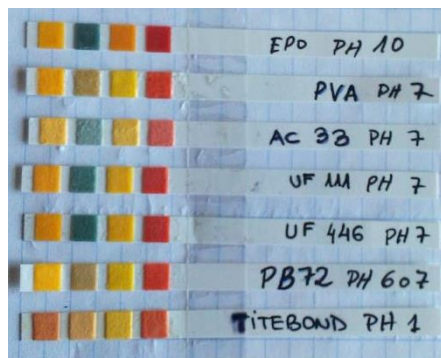 EPO PH 10
PVA PH 7
AC 33 PH 7
UF 111 PH 7
UF 446 PH 7
PB72 PH 6 o 7
TITEBOND PH 1